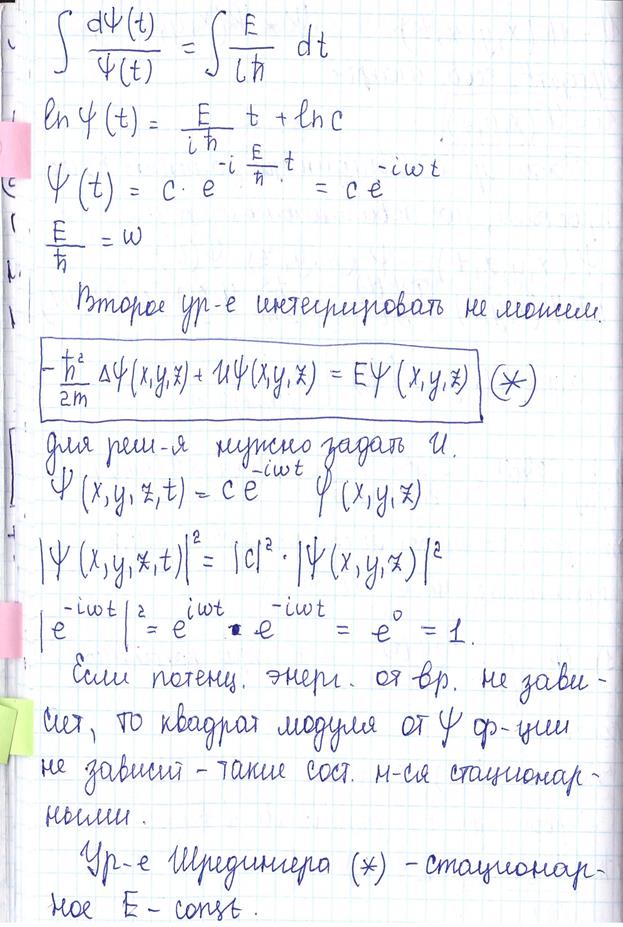 ∫ dΨ(t)/Ψ(t) = ∫ E/iħ dt
ln Ψ(t) = E/iħ t + ln c
Ψ(t) = c · e^{-i E/ħ t} = c e^{-iωt}
E/ħ = ω
Второе ур-е интегрировать не можем.
-ħ²/2m Δψ(x,y,z) + Uψ(x,y,z) = Eψ(x,y,z) (*)
для реш-я нужно задать U.
Ψ(x,y,z,t) = c e^{-iωt} ψ(x,y,z)
|Ψ(x,y,z,t)|² = |c|² · |Ψ(x,y,z)|²
|e^{-iωt}|² = e^{iωt} · e^{-iωt} = e⁰ = 1.
Если потенц. энерг. от вр. не зави-
сит, то квадрат модуля от Ψ ф-ции
не зависит - такие сост. н-ся стационар-
ными.
Ур-е Шредингера (*) - стационар-
ное E - const.